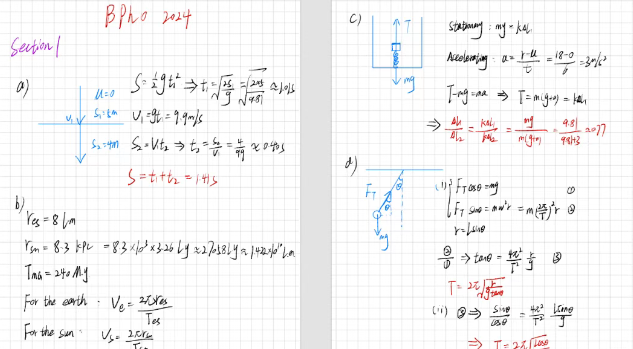 BPhO 2024
Section 1
a)
u=0
S₁=5m
V₁
S₂=4m
S=½gt₁² ⇒ t₁=√(2S/g)=√(2×5/9.81)≈1.01s
V₁=gt₁=9.9m/s
S₂=Vt₂ ⇒ t₂=S₂/V₁=4/9.9≈0.40s
S=t₁+t₂=1.41s
b)
r_es = 8 Lm
r_sm = 8.3 kpc = 8.3×10³×3.26 Ly≈27058Ly≈
T_MG = 240 My
For the earth : V_e = 2πr_es/T_es
For the sun : V_s =
c)
T
mg
Stationary : mg=kΔL₁
Accelerating : a = (v-u)/t = (18-0)/6 = 3m/s²
T-mg=ma ⇒ T=m(g+a)=kΔL₂
⇒ ΔL₁/ΔL₂ = kΔL₁/kΔL₂ = mg/m(g+a) = 9.81/9.81+3 ≈0.77
d)
F_T
θ
θ
mg
(i) F_T cosθ=mg ①
F_T sinθ=mω²r = m(2π/T)²r ②
r=Lsinθ
②/① ⇒ tanθ = 4π²/T² r/g ③
T = 2π√(r/gtanθ)
(ii) ③ ⇒ sinθ/cosθ = 4π²/T² Lsinθ/g
⇒ T=2π